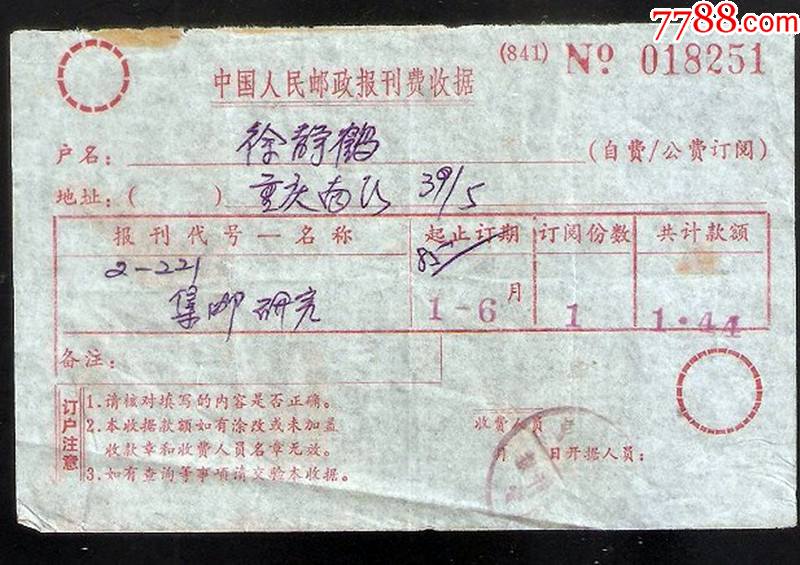 7788.com
(841) No 018251
中国人民邮政报刊费收据
户名: 徐静鹤 (自费/公费订阅)
地址:( ) 重庆 39/5
报刊代号—名称 起止订期 订阅份数 共计款额
2-221 85
集邮研究 1-6 月 1 1·44
备注:
订户注意
1.请核对填写的内容是否正确。
2.本收据款额如有涂改或未加盖
收款章和收费人员名章无效。
3.如有查询等事项请交验本收据。
收费人员
月 日开据人员: